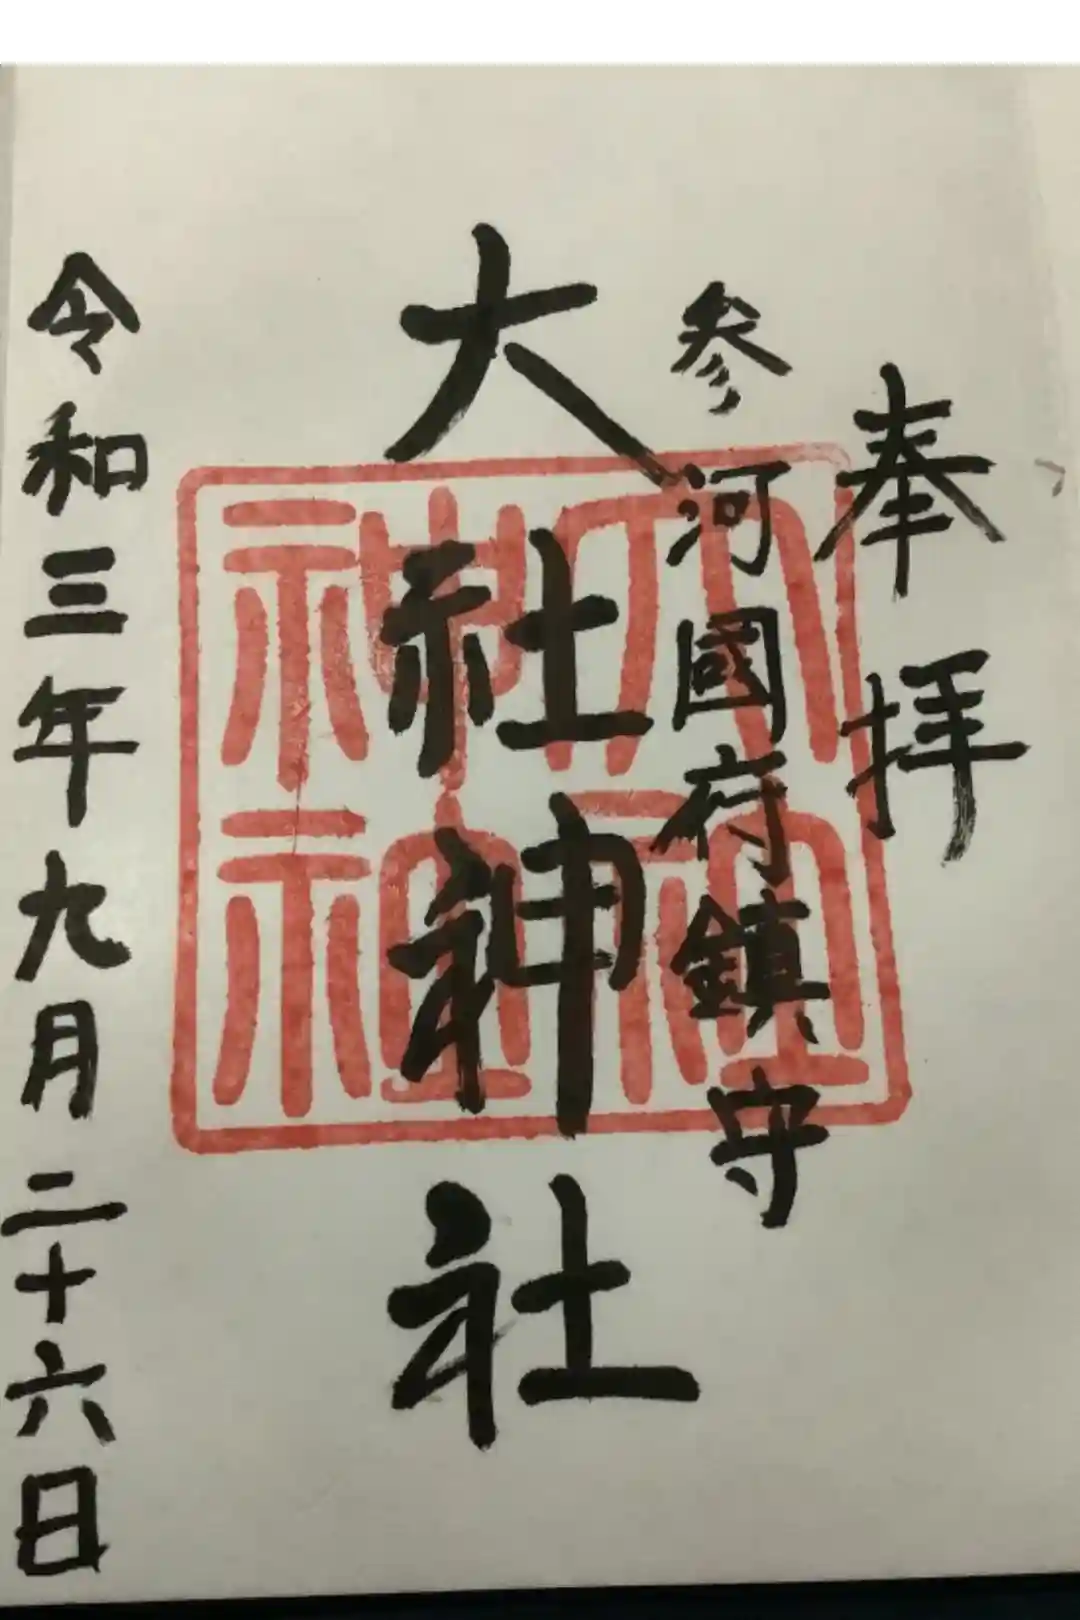 奉拝
参河國府鎮守
大社神社
大社神社
令和三年九月二十六日